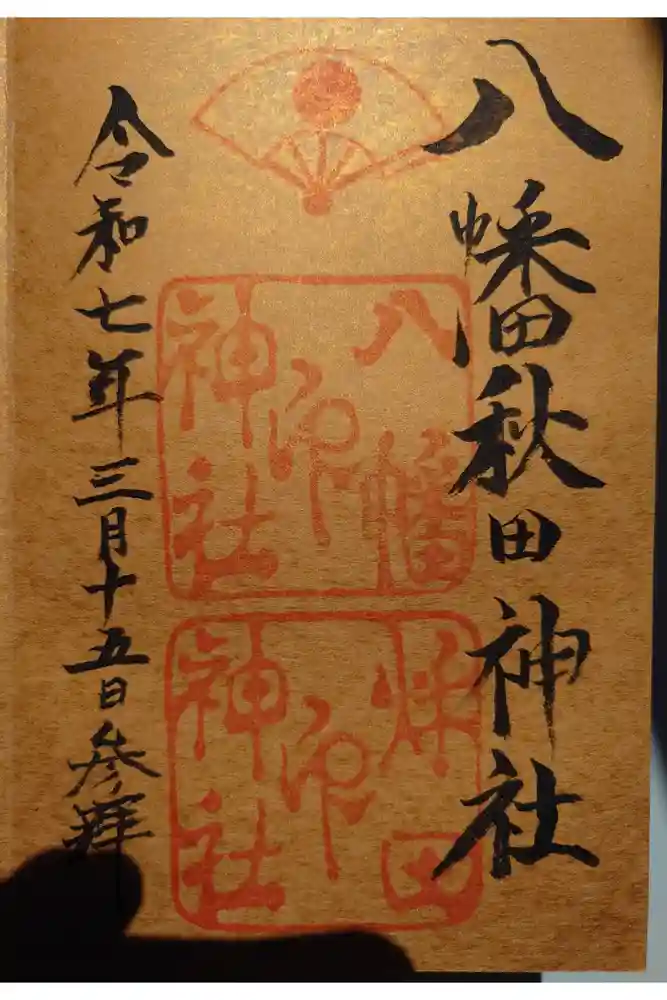 八幡秋田神社
八幡
神社
印
秋田
神社
印
令和七年三月十五日参拜